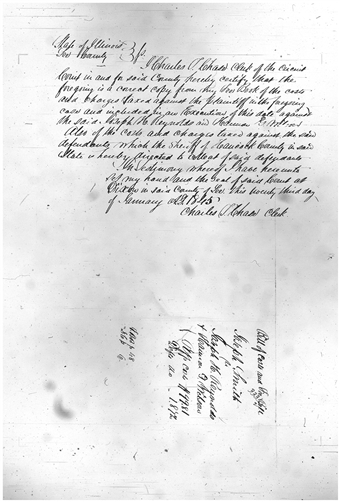 State of Illinois,
Lee County } ss
I Charles T. Chase Clerk of the Circuit
Court in and for said County hereby certify that the
foregoing is a correct copy from my Fee Book of the costs
and charges taxed against the plaintiff in the foregoing
case and included in an Execution of this date against
the said Joseph H. Reynolds and Harmon T. Wilson
Also of the costs and charges taxed against the said
defendants which the Sheriff of Hancock County in said
State is hereby directed to collect of said defendants
In testimony whereof I have hereunto
set my hand and the seal of said Court at
Dixon in said County of Lee this twenty third day
of January A.D. 1845
Charles T. Chase Clerk
Bill of costs
Joseph Smith
vs
Joseph H. Reynolds
& Harmon T. Wilson